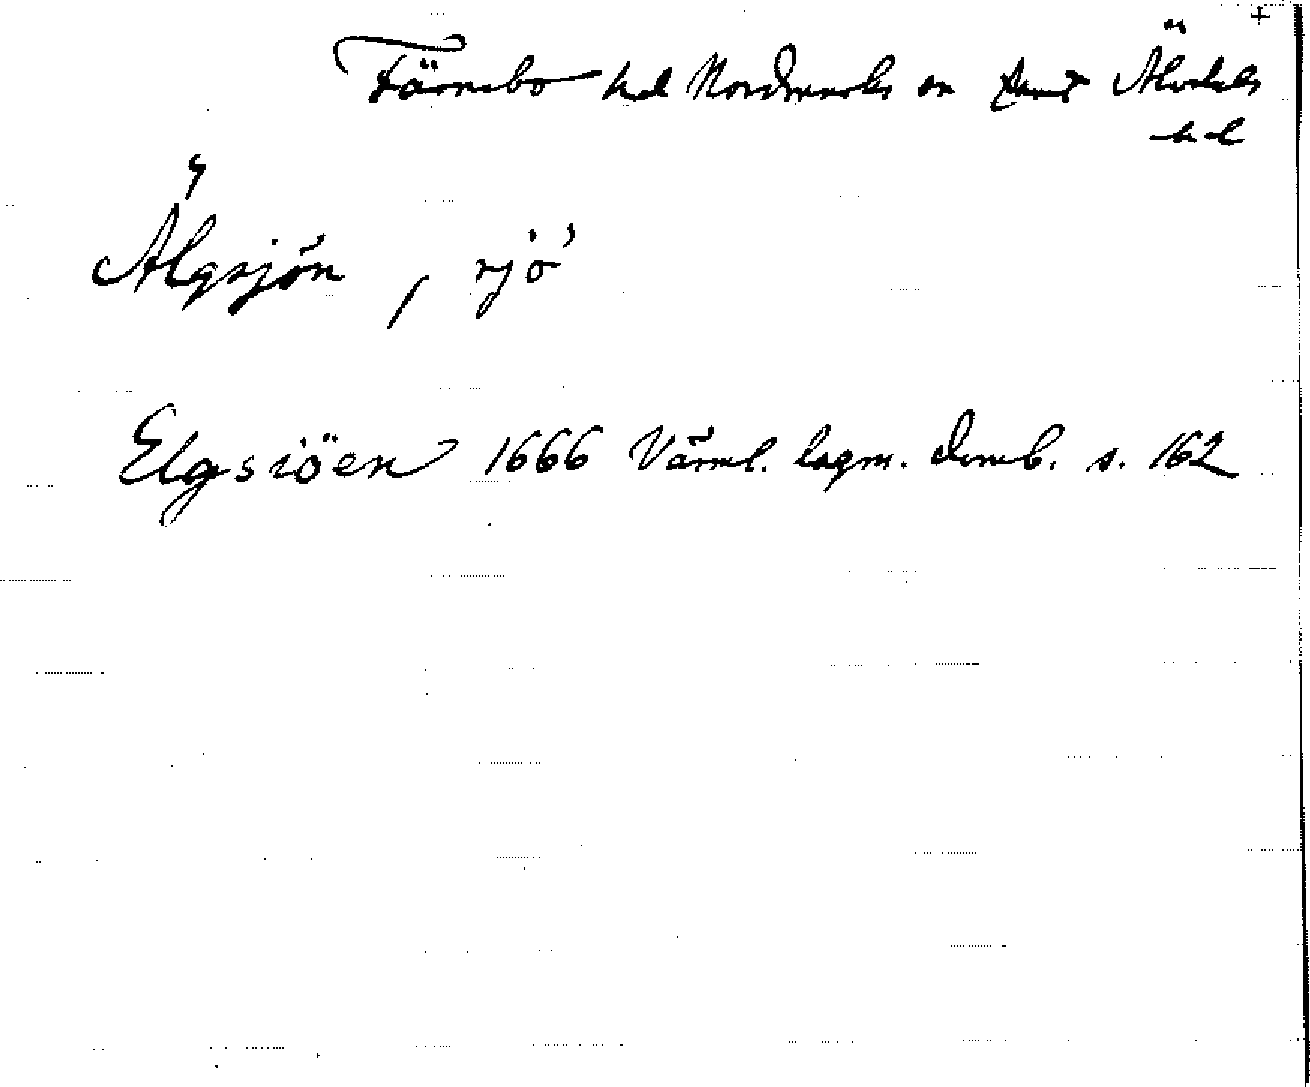 +
Färnebo hd Nordmarks sn samt Älvdals
hd
Älgsjön, sjö
Elgsiöen 1666 Värml. lagm. domb. s. 162